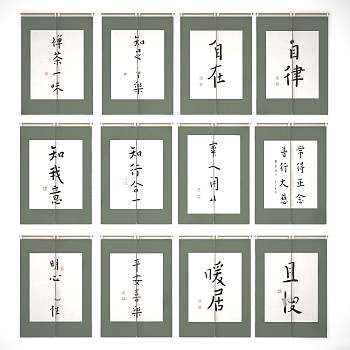 禅茶一味
知足常樂
自在
自律
知我意
知行合一
常得正念
善行大慈
明心見性
平安喜樂
暖居
且慢